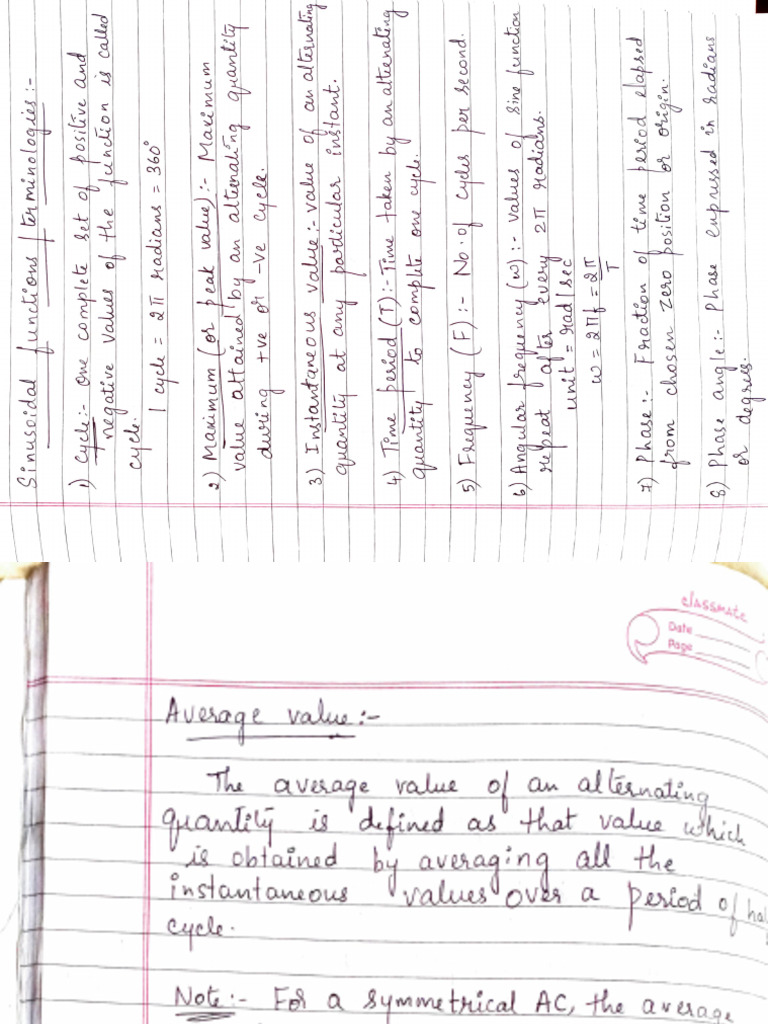 Sinusoidal functions / terminologies :-
1) Cycle :- one complete set of positive and
negative values of the function is called
cycle.
1 cycle = 2π radians = 360°
2) Maximum (or peak value) :- Maximum
value attained by an alternating quantity
during +ve or -ve cycle.
3) Instantaneous value :- value of an alternating
quantity at any particular instant.
4) Time period (T) :- Time taken by an alternating
quantity to complete one cycle.
5) Frequency (F) :- No. of cycles per second.
6) Angular frequency (w) :- values of sine function
repeat after every 2π radians.
unit = rad/sec
w = 2πf = 2π/T
7) Phase :- Fraction of time period elapsed
from chosen zero position or origin.
8) Phase angle :- Phase expressed in radians
or degrees.
classmate
Date
Page
Average value :-
The average value of an alternating
quantity is defined as that value which
is obtained by averaging all the
instantaneous values over a period of
cycle.
Note :- For a symmetrical AC, the average